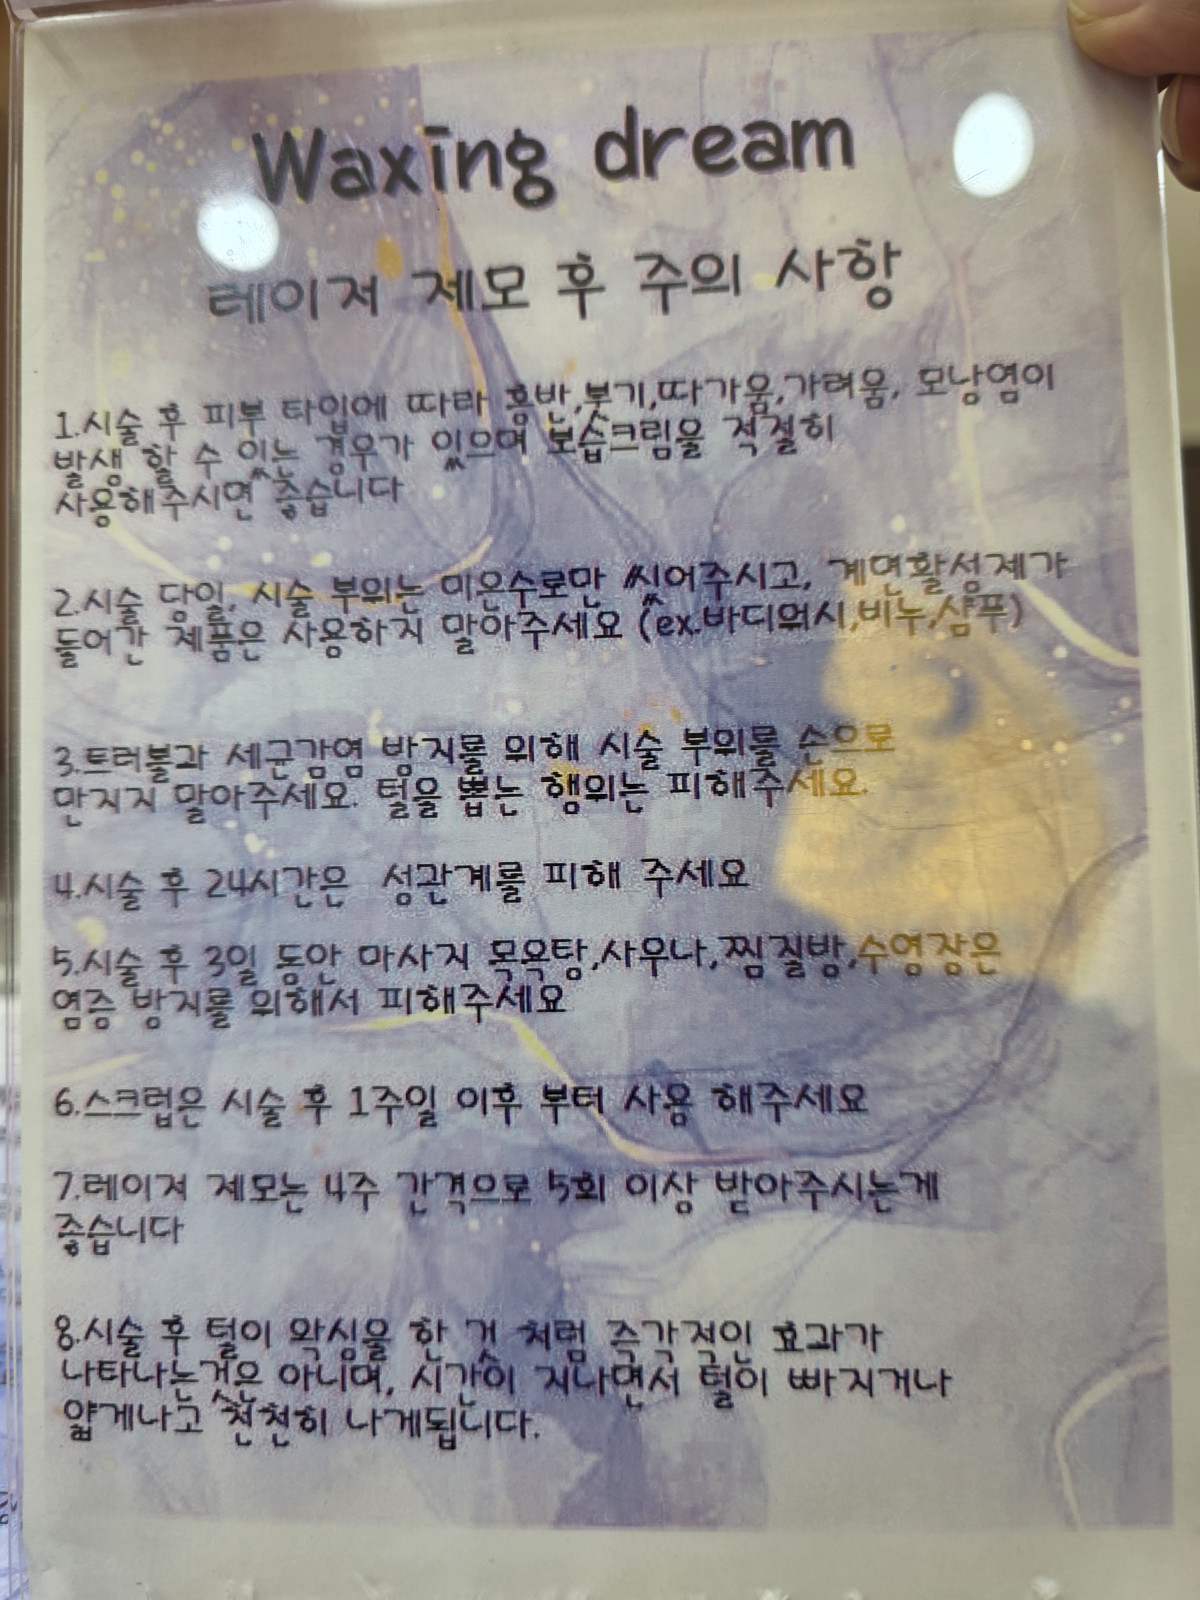 Waxing dream
레이저 제모 후 주의 사항
1.시술 후 피부 타입에 따라 홍반,붓기,따가움,가려움, 모낭염이
발생 할 수 있는 경우가 있으며 보습크림을 적절히
사용해주시면 좋습니다
2.시술 당일, 시술 부위는 미온수로만 씻어주시고, 계면활성제가
들어간 제품은 사용하지 말아주세요 (ex.바디워시,비누,샴푸)
3.트러블과 세균감염 방지를 위해 시술 부위를 손으로
만지지 말아주세요. 털을 뽑는 행위는 피해주세요.
4.시술 후 24시간은 성관계를 피해 주세요
5.시술 후 3일 동안 마사지 목욕탕,사우나,찜질방,수영장은
염증 방지를 위해서 피해주세요
6.스크럽은 시술 후 1주일 이후 부터 사용 해주세요
7.레이져 제모는 4주 간격으로 5회 이상 받아주시는게
좋습니다
8.시술 후 털이 왁싱을 한 것 처럼 즉각적인 효과가
나타나는것은 아니며, 시간이 지나면서 털이 빠지거나
얇게나고 천천히 나게됩니다.